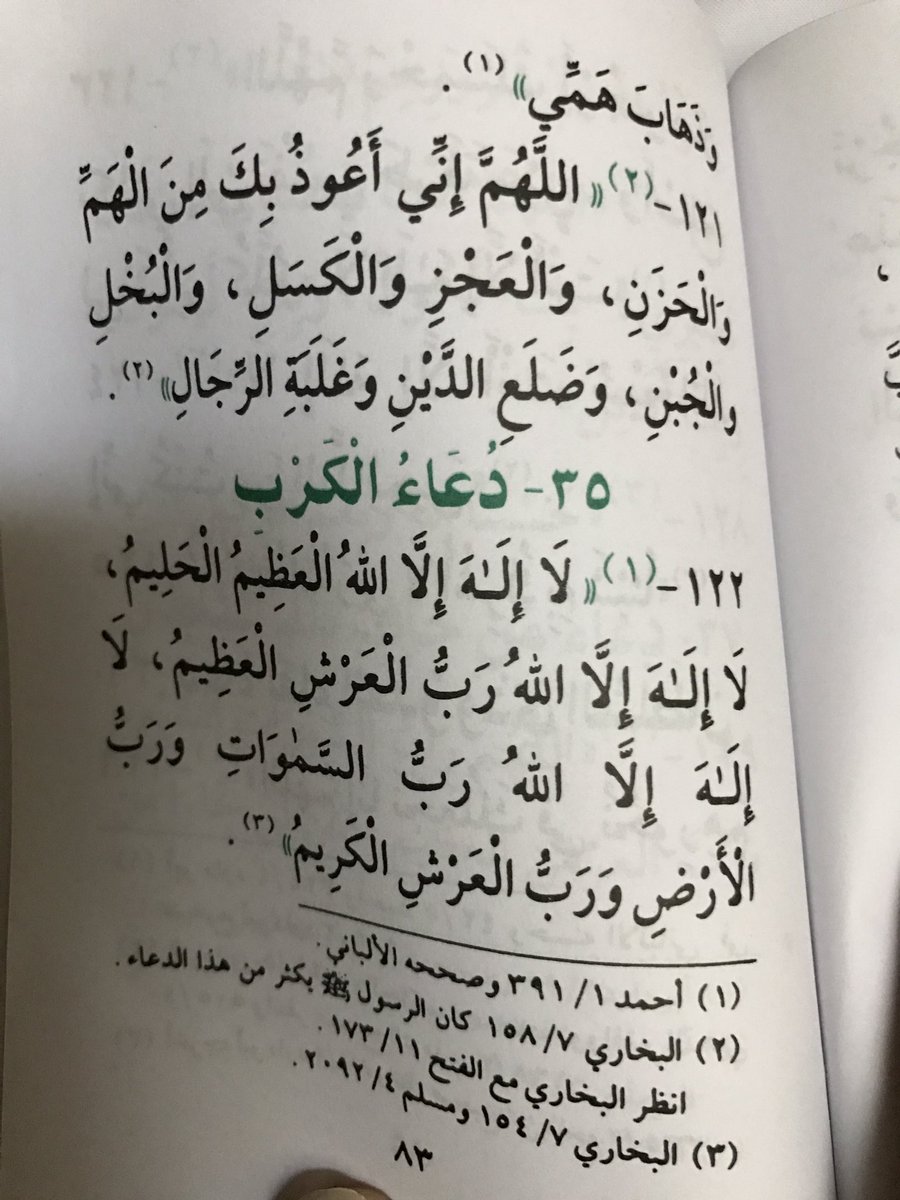 وَذَهَابَ هَمِّي» (١).
١٢١-(٢) «اللَّهُمَّ إِنِّي أَعُوذُ بِكَ مِنَ الْهَمِّ
وَالْحَزَنِ، وَالْعَجْزِ وَالْكَسَلِ، وَالْبُخْلِ
والْجُبْنِ، وَضَلَعِ الدَّيْنِ وَغَلَبَةِ الرِّجَالِ» (٢).
٣٥- دُعَاءُ الْكَرْبِ
١٢٢-(١) «لَا إِلَـٰهَ إِلَّا اللهُ الْعَظِيمُ الْحَلِيمُ،
لَا إِلَـٰهَ إِلَّا اللهُ رَبُّ الْعَرْشِ الْعَظِيمُ، لَا
إِلَـٰهَ إِلَّا اللهُ رَبُّ السَّمٰوَاتِ وَرَبُّ
الْأَرْضِ وَرَبُّ الْعَرْشِ الْكَرِيمُ» (٣).
(١) أحمد ١/ ٣٩١ وصححه الألباني.
(٢) البخاري ٧/ ١٥٨ كان الرسول ﷺ يكثر من هذا الدعاء.
انظر البخاري مع الفتح ١١/ ١٧٣.
(٣) البخاري ٧/ ١٥٤ ومسلم ٤/ ٢٠٩٢.
٨٣